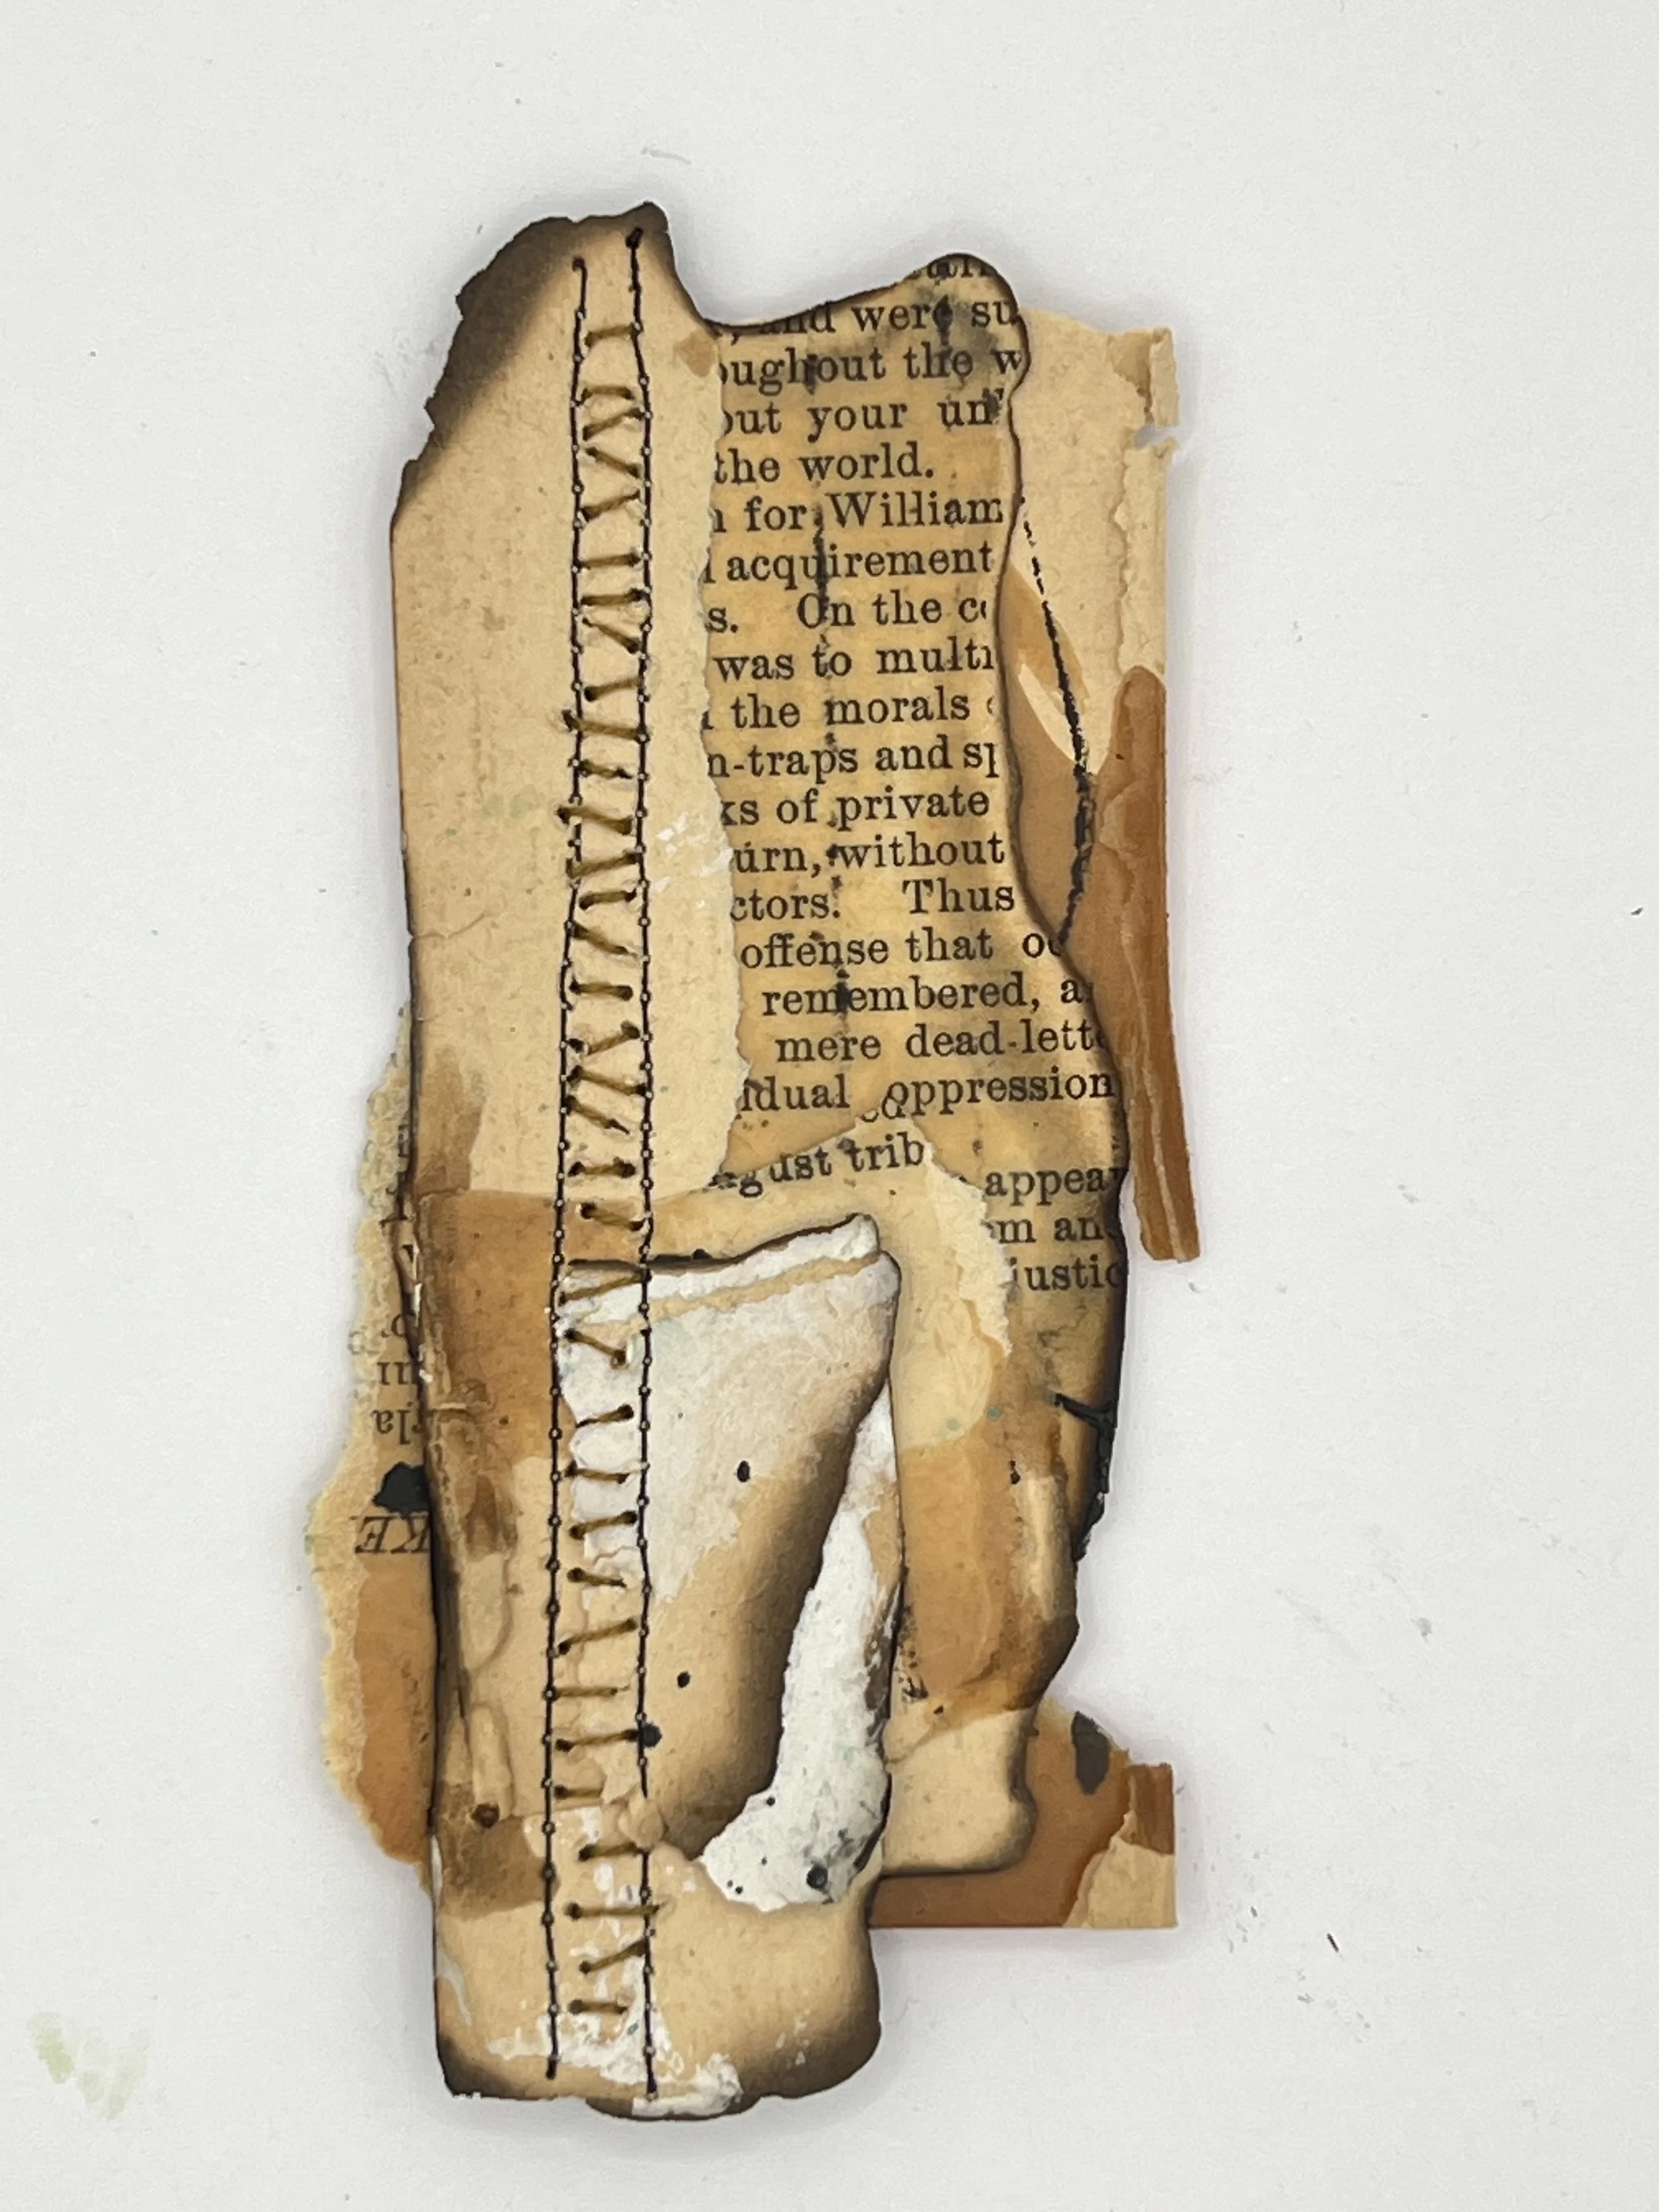 and were su
oughout the w
out your un
the world.
for William
acquirement
s. On the co
was to multi
the morals
n-traps and sp
ks of private
urn, without
ctors. Thus
offense that oc
remembered, a
mere dead-lette
idual oppression
ust trib
appear
m and
justic
KE